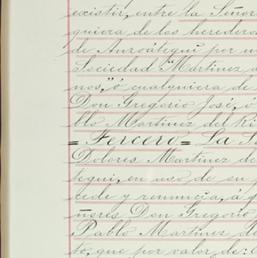 existir, entre la Señor
quiera de los herederos
de Anzoátegui por un
Sociedad Martinez
nos," ó cualquiera de
Don Gregorio José, ó
llo Martinez del Ri
= Tercero = La S
Dolores Martinez de
tegui, en uso de su
cede y renuncia, á f
ñores Don Gregorio
Pablo Martinez de
to, que por valor de: